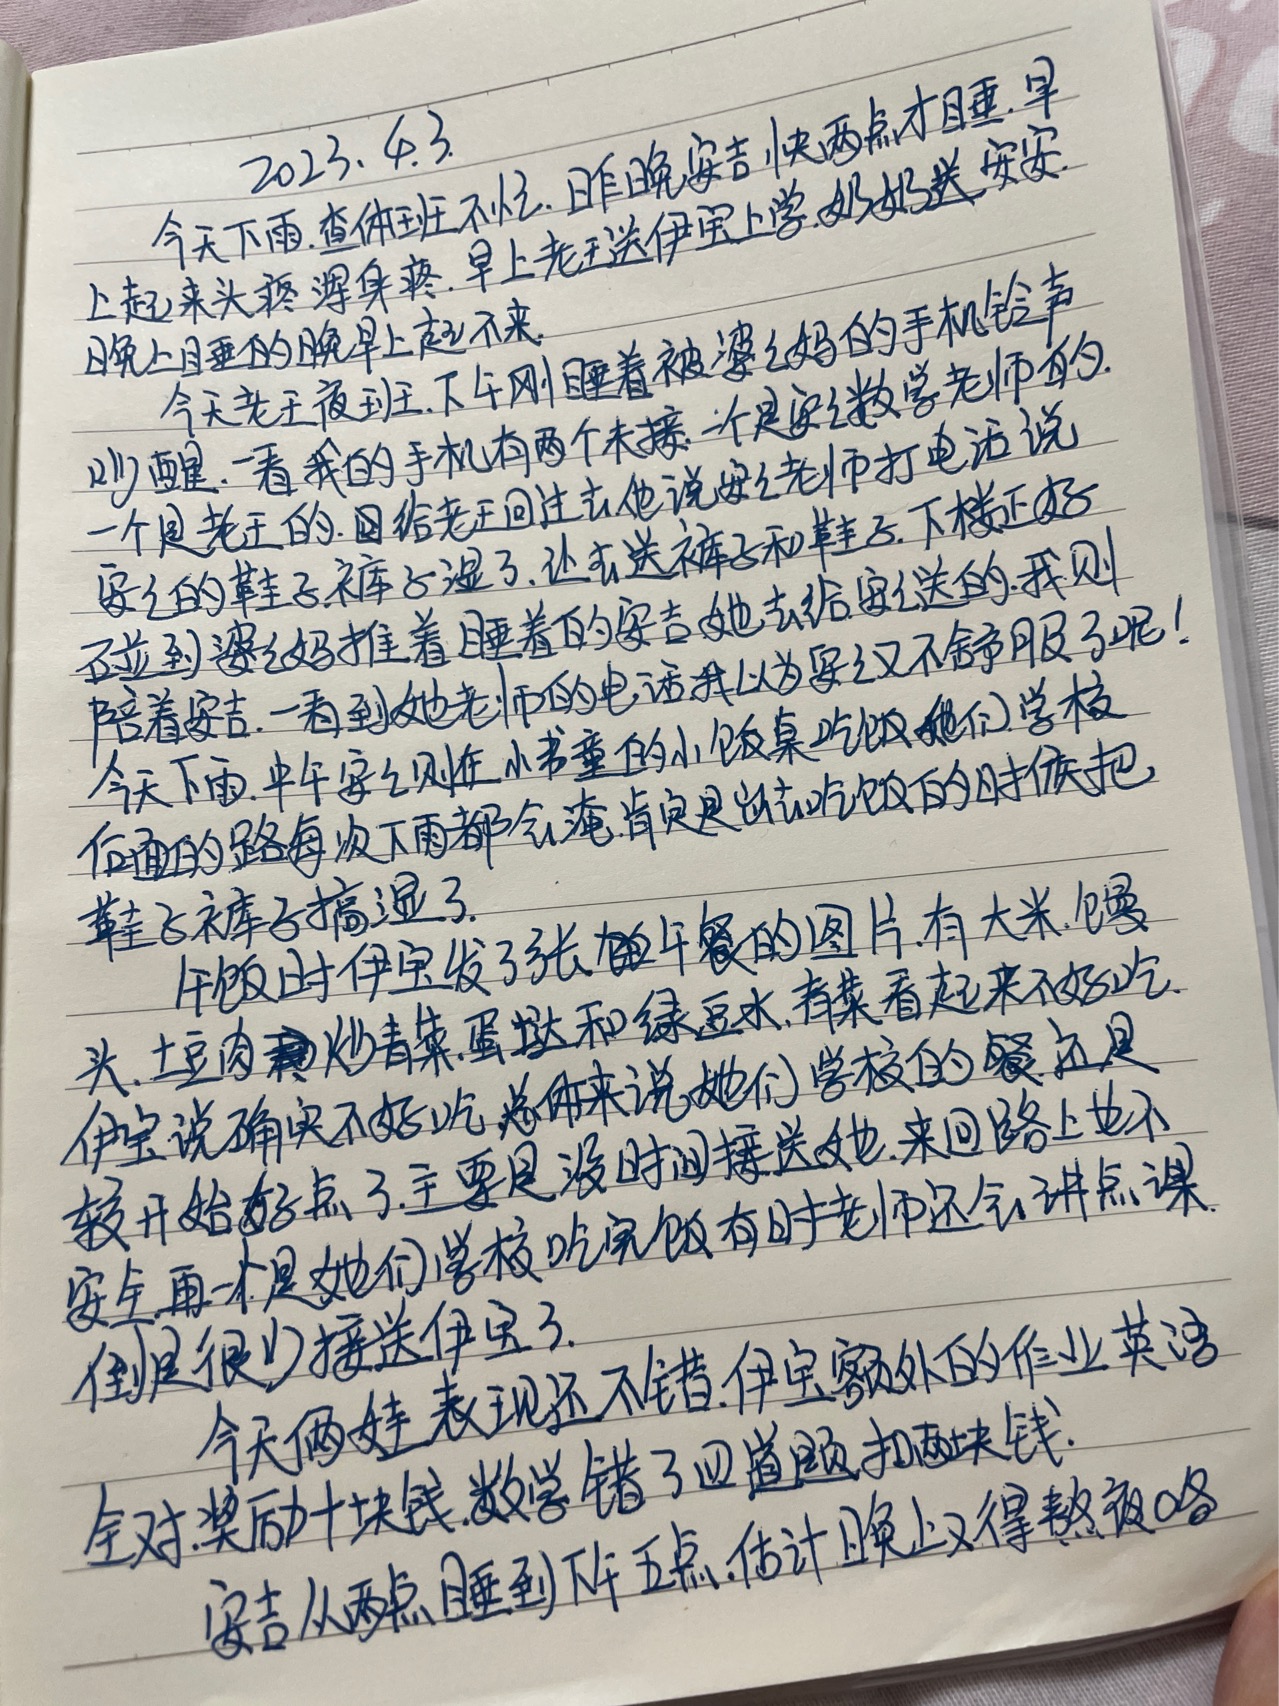 2023.4.3.
今天下雨.查体班不忙.昨晚安吉快两点才睡.早
上起来头疼浑身疼.早上老王送伊宝上学.奶奶送安安.
晚上睡的晚早上起不来.
今天老王夜班.下午刚睡着被婆婆妈的手机铃声
吵醒.一看我的手机有两个未接.一个是安安数学老师的.
一个是老王的.给老王回过去他说安安老师打电话说
安安的鞋子.裤子湿了.让去送裤子和鞋子.下楼正好
碰到婆婆妈推着睡着的安吉她去给安安送的.我则
陪着安吉.一看到她老师的电话我以为安安又不舒服了呢!
今天下雨.中午安安则在小书童的小饭桌吃饭她们学校
后面的路每次下雨都会淹.肯定是出去吃饭的时候把
鞋子裤子搞湿了.
午饭时伊宝发了张午餐的图片.有大米.馒
头.土豆肉炒青菜.蛋挞和绿豆水.青菜看起来不好吃.
伊宝说确实不好吃.总体来说她们学校的餐还是
较开始好点了.主要是没时间接送她.来回路上也不
安全.再一个是她们学校吃完饭有时老师还会讲点课.
倒是很少接送伊宝了.
今天俩娃表现还不错.伊宝额外的作业英语
全对.奖励十块钱.数学错了四道题扣两块钱.
安吉从两点睡到下午五点.估计晚上又得熬夜咯